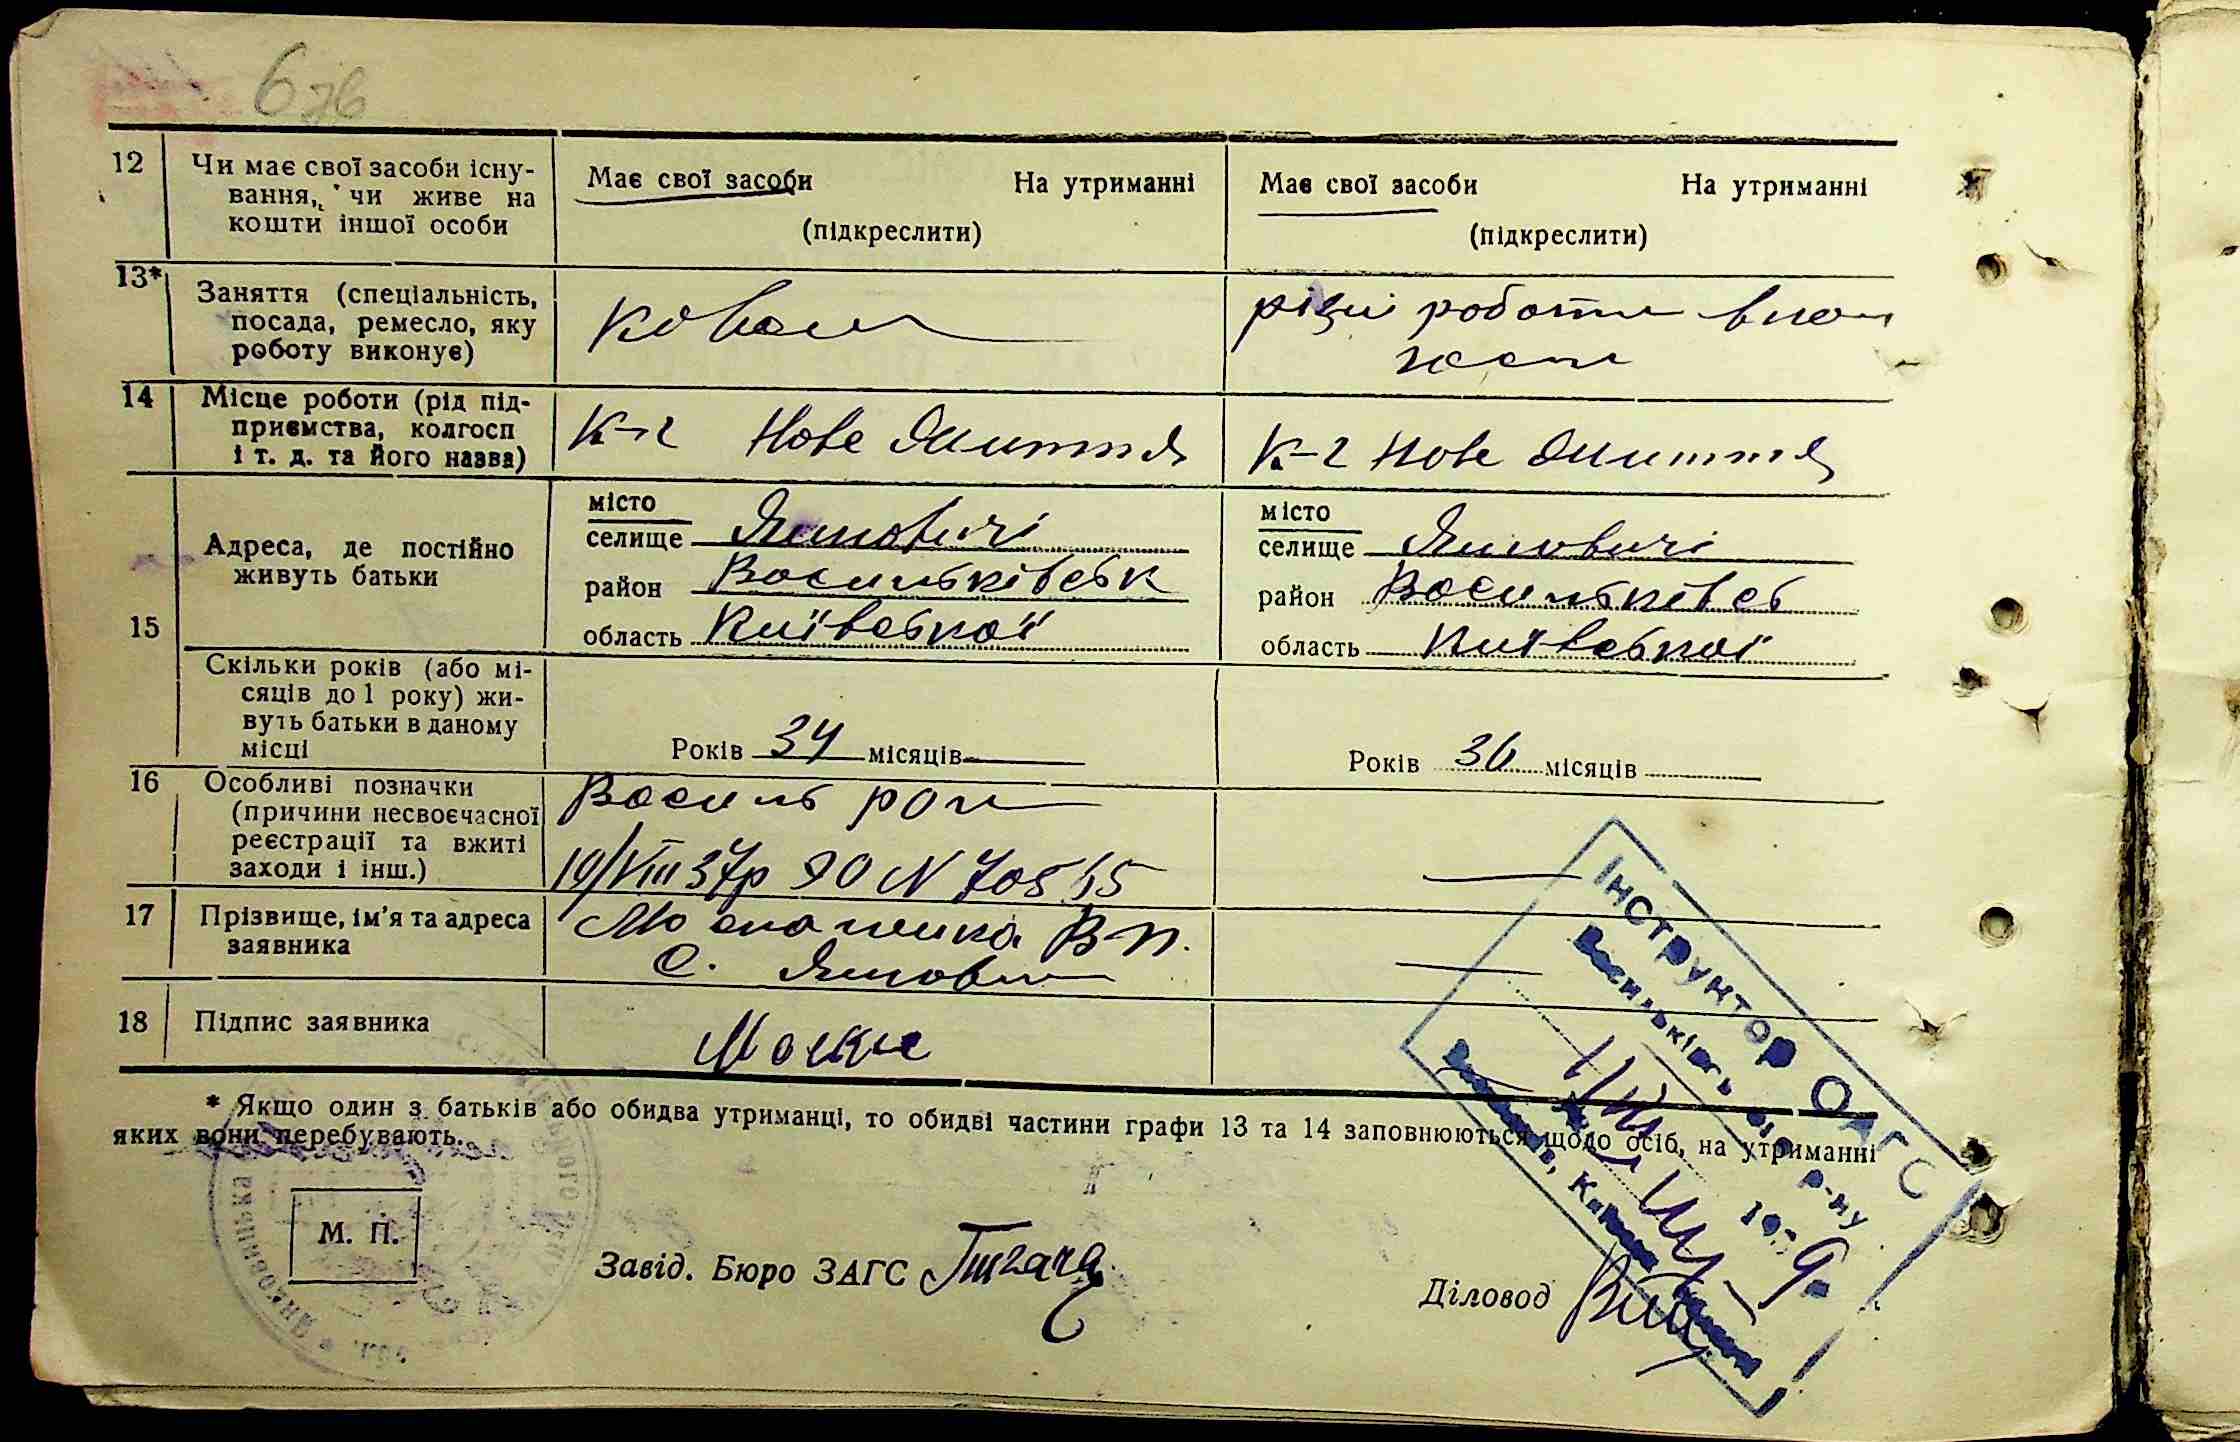 6 зв
12 Чи має свої засоби існу-
вання, чи живе на
кошти іншої особи
Має свої засоби На утриманні
(підкреслити)
Має свої засоби На утриманні
(підкреслити)
13* Заняття (спеціальність,
посада, ремесло, яку
роботу виконує)
Коваль
різні роботи
14 Місце роботи (рід під-
приємства, колгосп
і т. д. та його назва)
К-г Нове Життя
К-г Нове Життя
15 Адреса, де постійно
живуть батьки
місто
селище Яцковичі
район Васильківськ
область Київської
місто
селище Яцковичі
район Васильківсь
область Київської
Скільки років (або мі-
сяців до 1 року) жи-
вуть батьки в даному
місці
Років 34 місяців
Років 36 місяців
16 Особливі позначки
(причини несвоєчасної
реєстрації та вжиті
заходи і інш.)
Василь
10/VIII 37р ЯО N
17 Прізвище, ім'я та адреса
заявника
В П.
с.
18 Підпис заявника
* Якщо один з батьків або обидва утриманці, то обидві частини графи 13 та 14 заповнюються щодо осіб, на утриманні
яких вони перебувають.
М. П.
Завід. Бюро ЗАГС
Діловод
Інструктор ОАГС
Васильківсь р-ну
1939